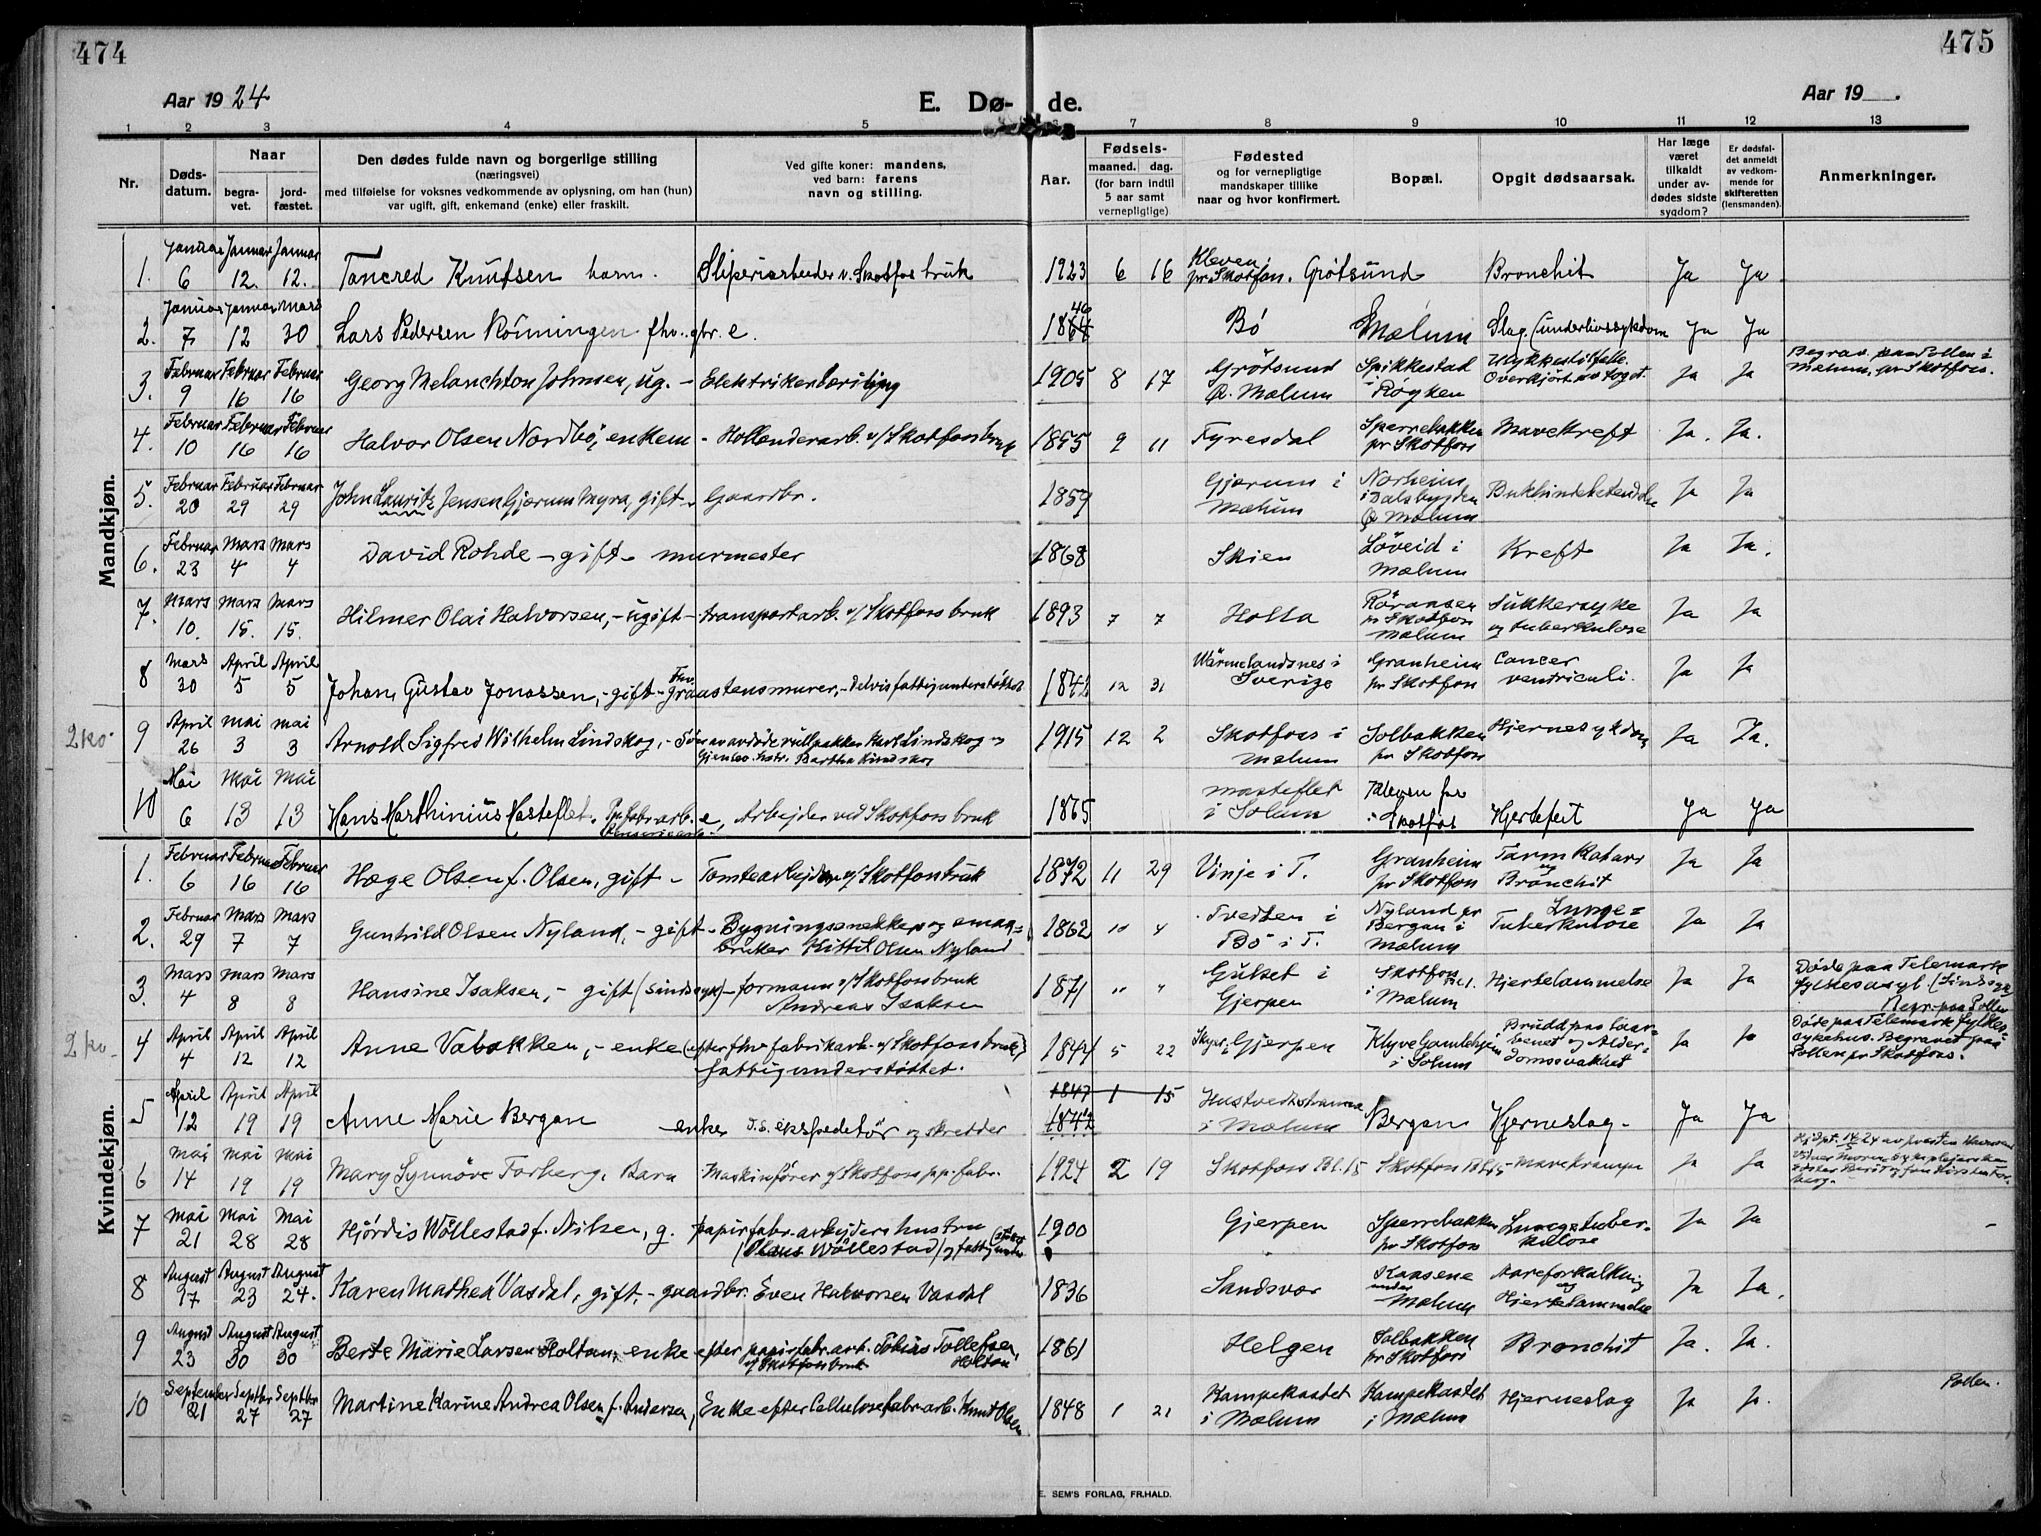 474
475
Aar 1924
E. Dø-
de.
Aar 19 .
1 2 3 4 5 6 7 8 9 10 11 12 13
Nr.
Døds-
datum.
Naar
begra-
vet.
jord-
fæstet.
Den dødes fulde navn og borgerlige stilling
(næringsvei)
med tilføielse for voksnes vedkommende av oplysning, om han (hun)
var ugift, gift, enkemand (enke) eller fraskilt.
Ved gifte koner: mandens,
ved barn: farens
navn og stilling.
Aar.
Fødsels-
maaned. dag.
(for barn indtil
5 aar samt
vernepligtige)
Fødested
og for vernepligtige
mandskaper tillike
naar og hvor konfirmert.
Bopæl.
Opgit dødsaarsak.
Har læge
været
tilkaldt
under av-
dødes sidste
sygdom?
Er dødsfal-
det anmeldt
av vedkom-
mende for
skifteretten
(lensmanden).
Anmerkninger.
Mandkjøn.
1. Januar 6 Januar 12. Januar 12. Tancred Knutsen barn. Sliperiarbeider v. Skotfos bruk 1923 6 16 Kleven pr Skotfoss. Grøtsund Bronchit Ja Ja
2. Januar 7 Januar 12 Mars 30 Lars Pedersen Rönningen fhv. gbr. e. 1864 46 Bö Mælum Slag (underlivssykdom Ja Ja
3. Februar 9 Februar 16 Februar 16 Georg Melanchton Johnsen, ug. - Elektrikerlærling 1905 8 17 Grötsund Mælum Spikkestad i Røyken Ulykkestilfelle. Overkjört av toget. Ja Ja Begrav. paa Pollen i Mælum, pr Skotfoss.
4. Februar 10 Februar 16 Februar 16 Halvor Olsen Nordbö, enkem - Hollenderarb. v/ Skotfoss bruk 1855 9 11 Fyresdal Sperrebakken pr Skotfoss Mavekreft Ja. Ja.
5. Februar 20 Februar 29 Februar 29 John Lauritz Jensen Gjærum Myra, gift - Gaardbr. 1859 Gjærum i Mælum Norheim i Valsbygden Mælum Bukhindebetendelse Ja Ja
6. Februar 23 Mars 4 Mars 4 David Rohde - gift - murmester 1868 Skien Löveid i Mælum Kreft Ja Ja.
7. Mars 10. Mars 15. Mars 15. Hilmer Olai Halvorsen, - ugift - transportarb. v/ Skotfoss bruk 1893 7 7 Holla pr Skotfoss Mælum Sukkersyke og tuberkulose Ja Ja
8 Mars 30 April 5 April 5 Johan Gustav Jonassen, - gift - Fhv. graastensmurer, - delvis fattigunderstöttet 1842 12 31 Wärmelandsnes i Sverige Granheim pr Skotfoss Cancer ventriculi. Ja Ja
2 ko.
9 April 26 Mai 3 Mai 3 Arnold Sigfred Wilhelm Lindskog, - Sön av avdöde rullpakker Karl Lindskog og Gjenlev. hstr. Bertha Lindskog 1915 12 2 Skotfoss i Mælum Solbakken pr Skotfoss Hjernesykdom Ja Ja.
10 Mai 6 Mai 13 Mai 13 Hans Marthinius Masteflet. e, Arbejder ved Skotfoss bruk 1865 Masteflet i Solum Kleven pr Skotfos Hjertefeil Ja Ja
Kvindekjøn.
1. Februar 6 Februar 16 Februar 16 Hæge Olsen f. Olsen, gift - Tomtearbejder v/ Skotfoss bruk 1872 11 29 Vinje i T. Granheim pr Skotfoss Tarm Katarr og Bronchit Ja Ja
2. Februar 29 Mars 7 Mars 7 Gunhild Olsen Nyland, - gift - Bygningssnekker og smaa- bruker Kittil Olsen Nyland 1862 10 4 Tvedten i Bö i T. Nyland pr Bergan i Mælum Lunge- Tuberkulose Ja Ja
3. Mars 4 Mars 8 Mars 8 Hansine Isaksen, - gift (sindssyk) - formann v/ Skotfoss bruk Andreas Isaksen 1871 " " Gulset i Gjerpen Skotfoss i Mælum Hjertelammelse Ja Ja Döde paa Telemark fylkesasyl (Sindssyk) Begr. paa Pollen
2 ko-
4 April 4 April 12 April 12 Anne Vabakken, - enke (efter fhv fabrikarb. v/ Skotfoss bruk) fattigunderstöttet. 1844 5 22 Gjerpen Klyve Gamlehjem i Solum Brudd paa laar- benet og Alder- domssvakhet Ja Ja Döde paa Telemark fylkes- sykehus. Begravet paa Pollen pr Skotfoss.
5 April 12 April 19 April 19 Anne Marie Bergan enke, o.s. ekspeditör og skredder 1847 1 15 1842 i Mælum Bergan Hjerneslag. Ja Ja
6 Mai 14 Mai 19 Mai 19 Mary Synnöve Forberg, Barn Maskinförer v/ Skotfoss pp. fabr. 1924 2 19 Skotfoss Bl. 15 Skotfoss Bl. 15 Mavekrampe Ja Ja
7 Mai 21 Mai 28 Mai 28 Hjördis Wöllestad f. Nilsen, g. papirfabr. arbejders hustru (Olaus Wöllestad) 1900 Gjerpen Sperrebakken pr Skotfoss Lungetuber- kulose Ja Ja -
8 August 17 August 23 August 24. Karen Mathea Vasdal, gift, - gaardbr. Even Halvorsen Vasdal 1836 Sandsvær Kaasene under Mælum Aareforkalkning og Hjertelammelse Ja Ja.
9 August 23 August 30 August 30 Berte Marie Larsen Holtan, enke efter papirfabr. arb. Tobias Tollefsen Holtan v/ Skotfoss bruk 1861 Helgen Solbakken pr Skotfoss Bronchit Ja. Ja.
10 September 21 Septbr 27 Septbr 27 Martine Karine Andrea Olsen f. Andersen, Enke efter Cellulosefabr. arb. Knut Olsen 1848 1 21 Kampekastet i Mælum Kampekastet i Mælum Hjerneslag Ja Ja. Pollen.
E. SEM'S FORLAG, FR.HALD.